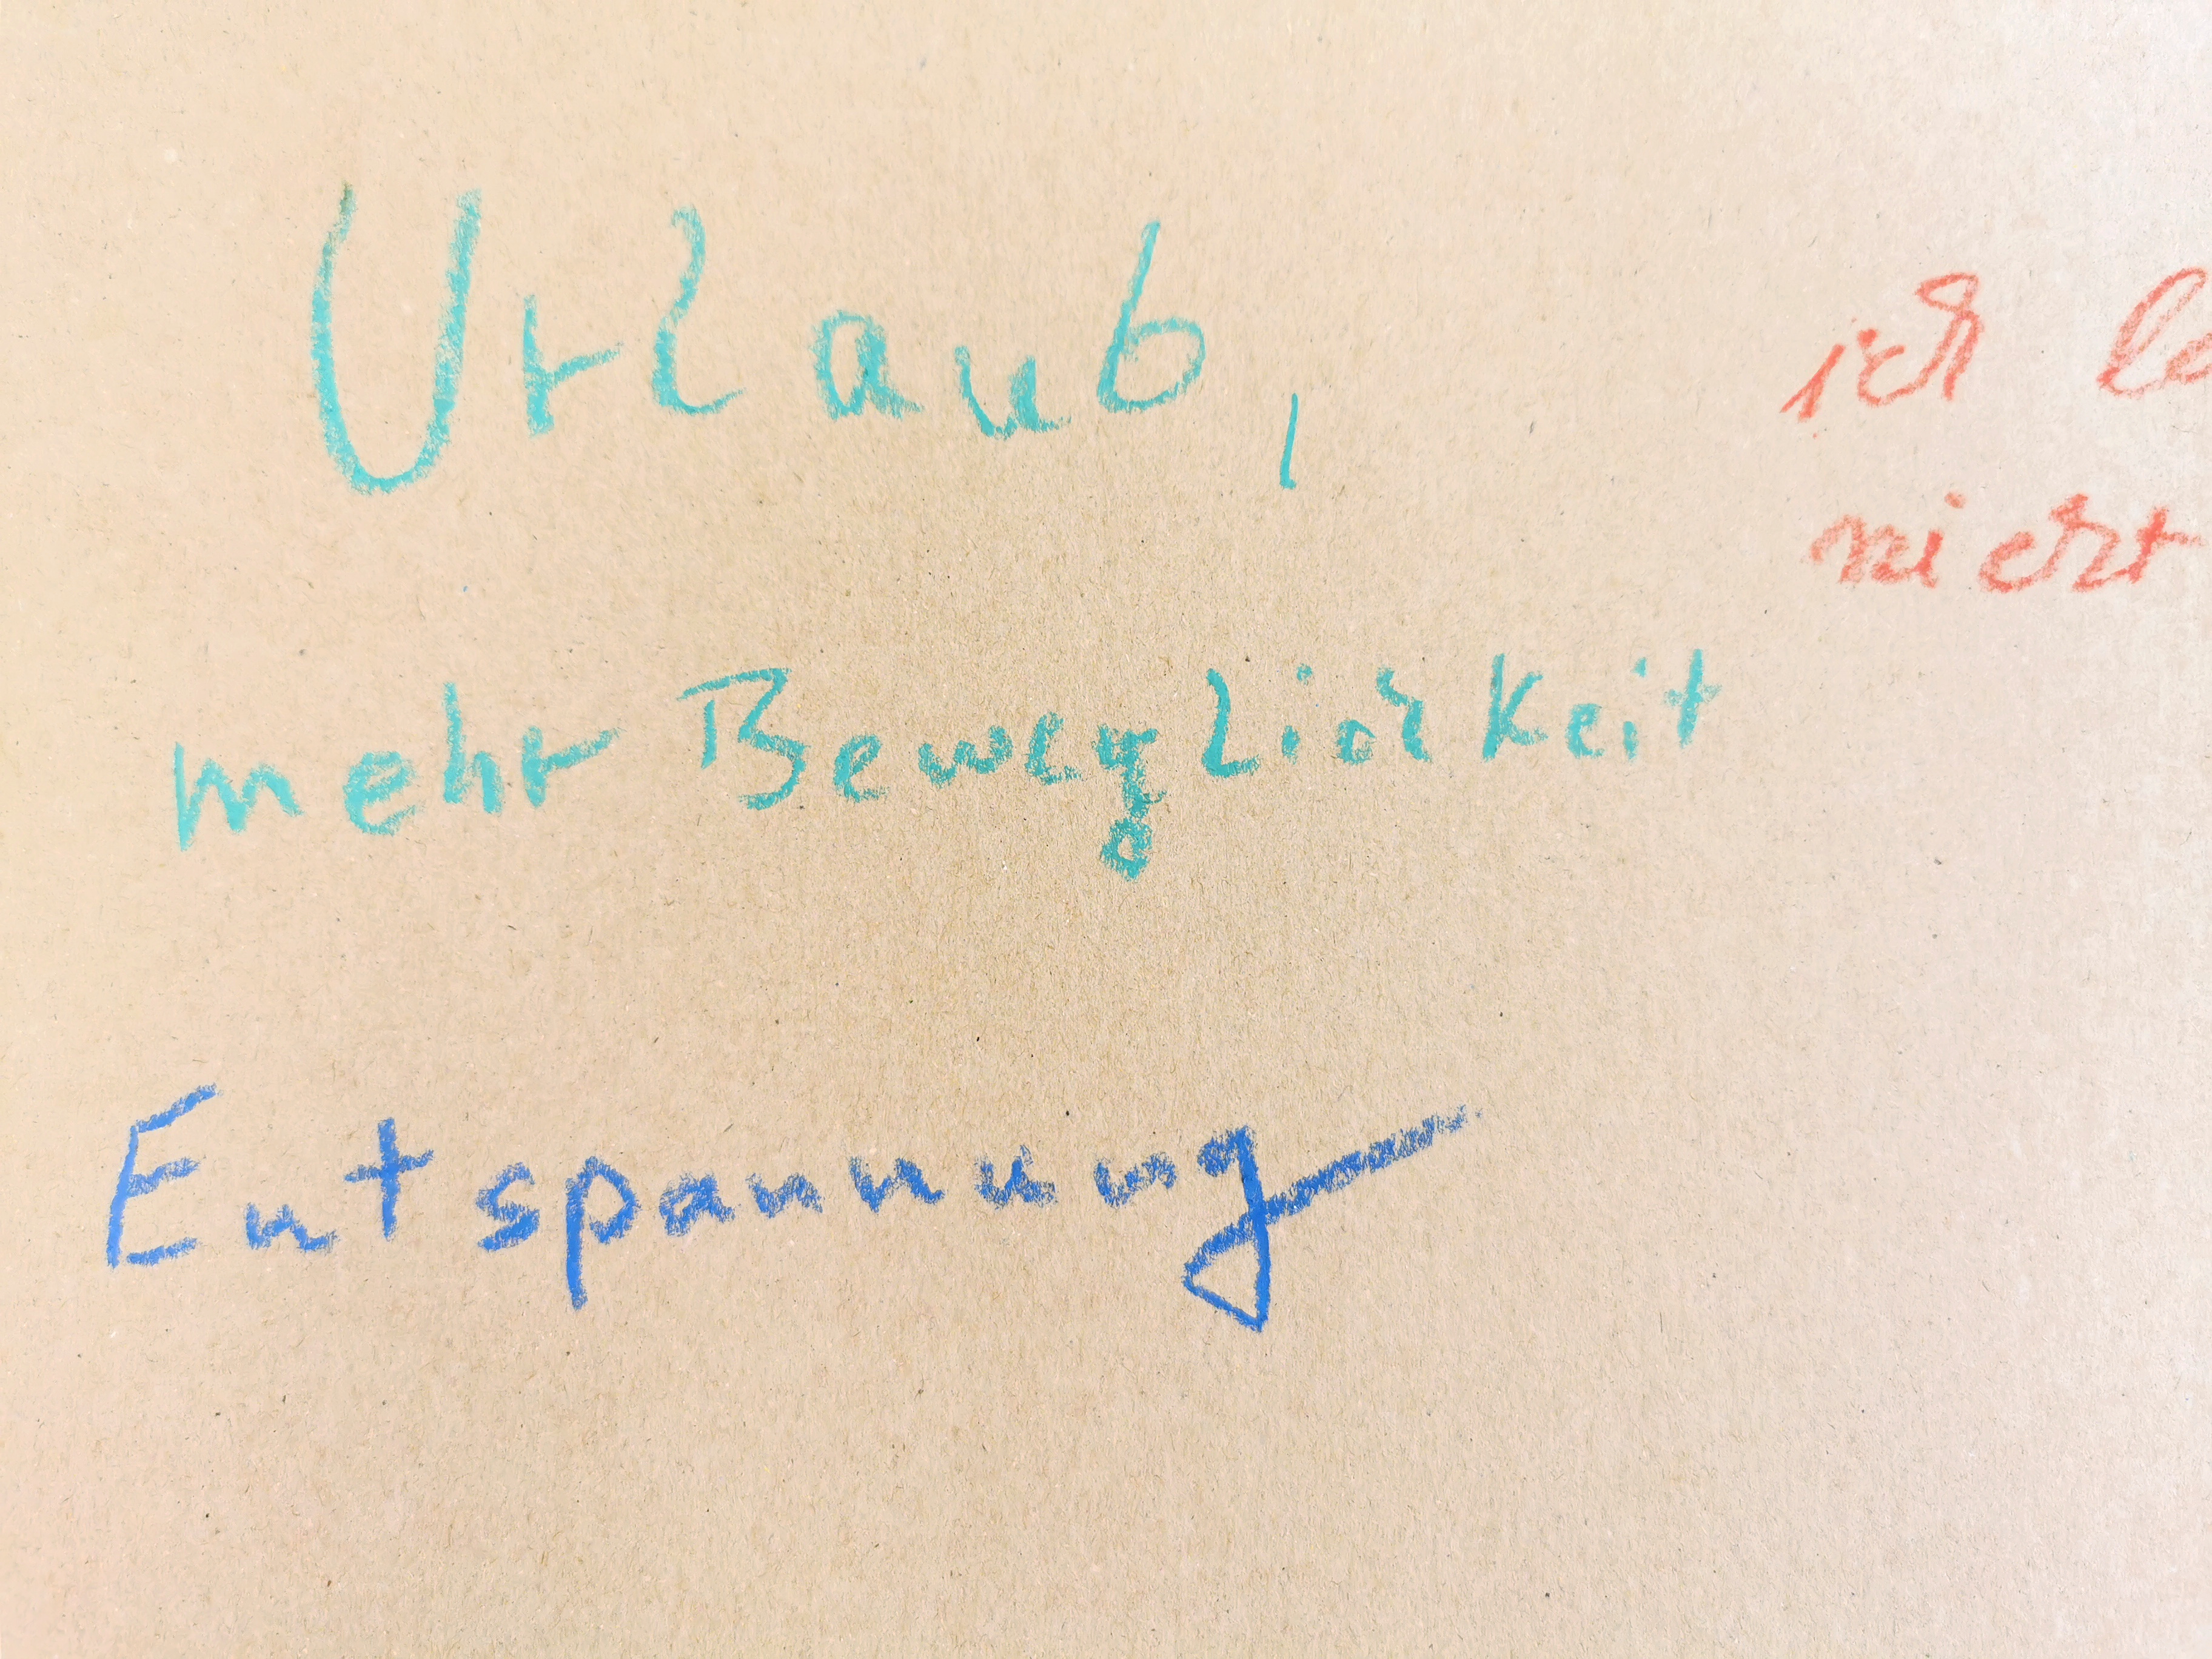 Urlaub,
mehr Beweglichkeit
Entspannung
ich
nicht